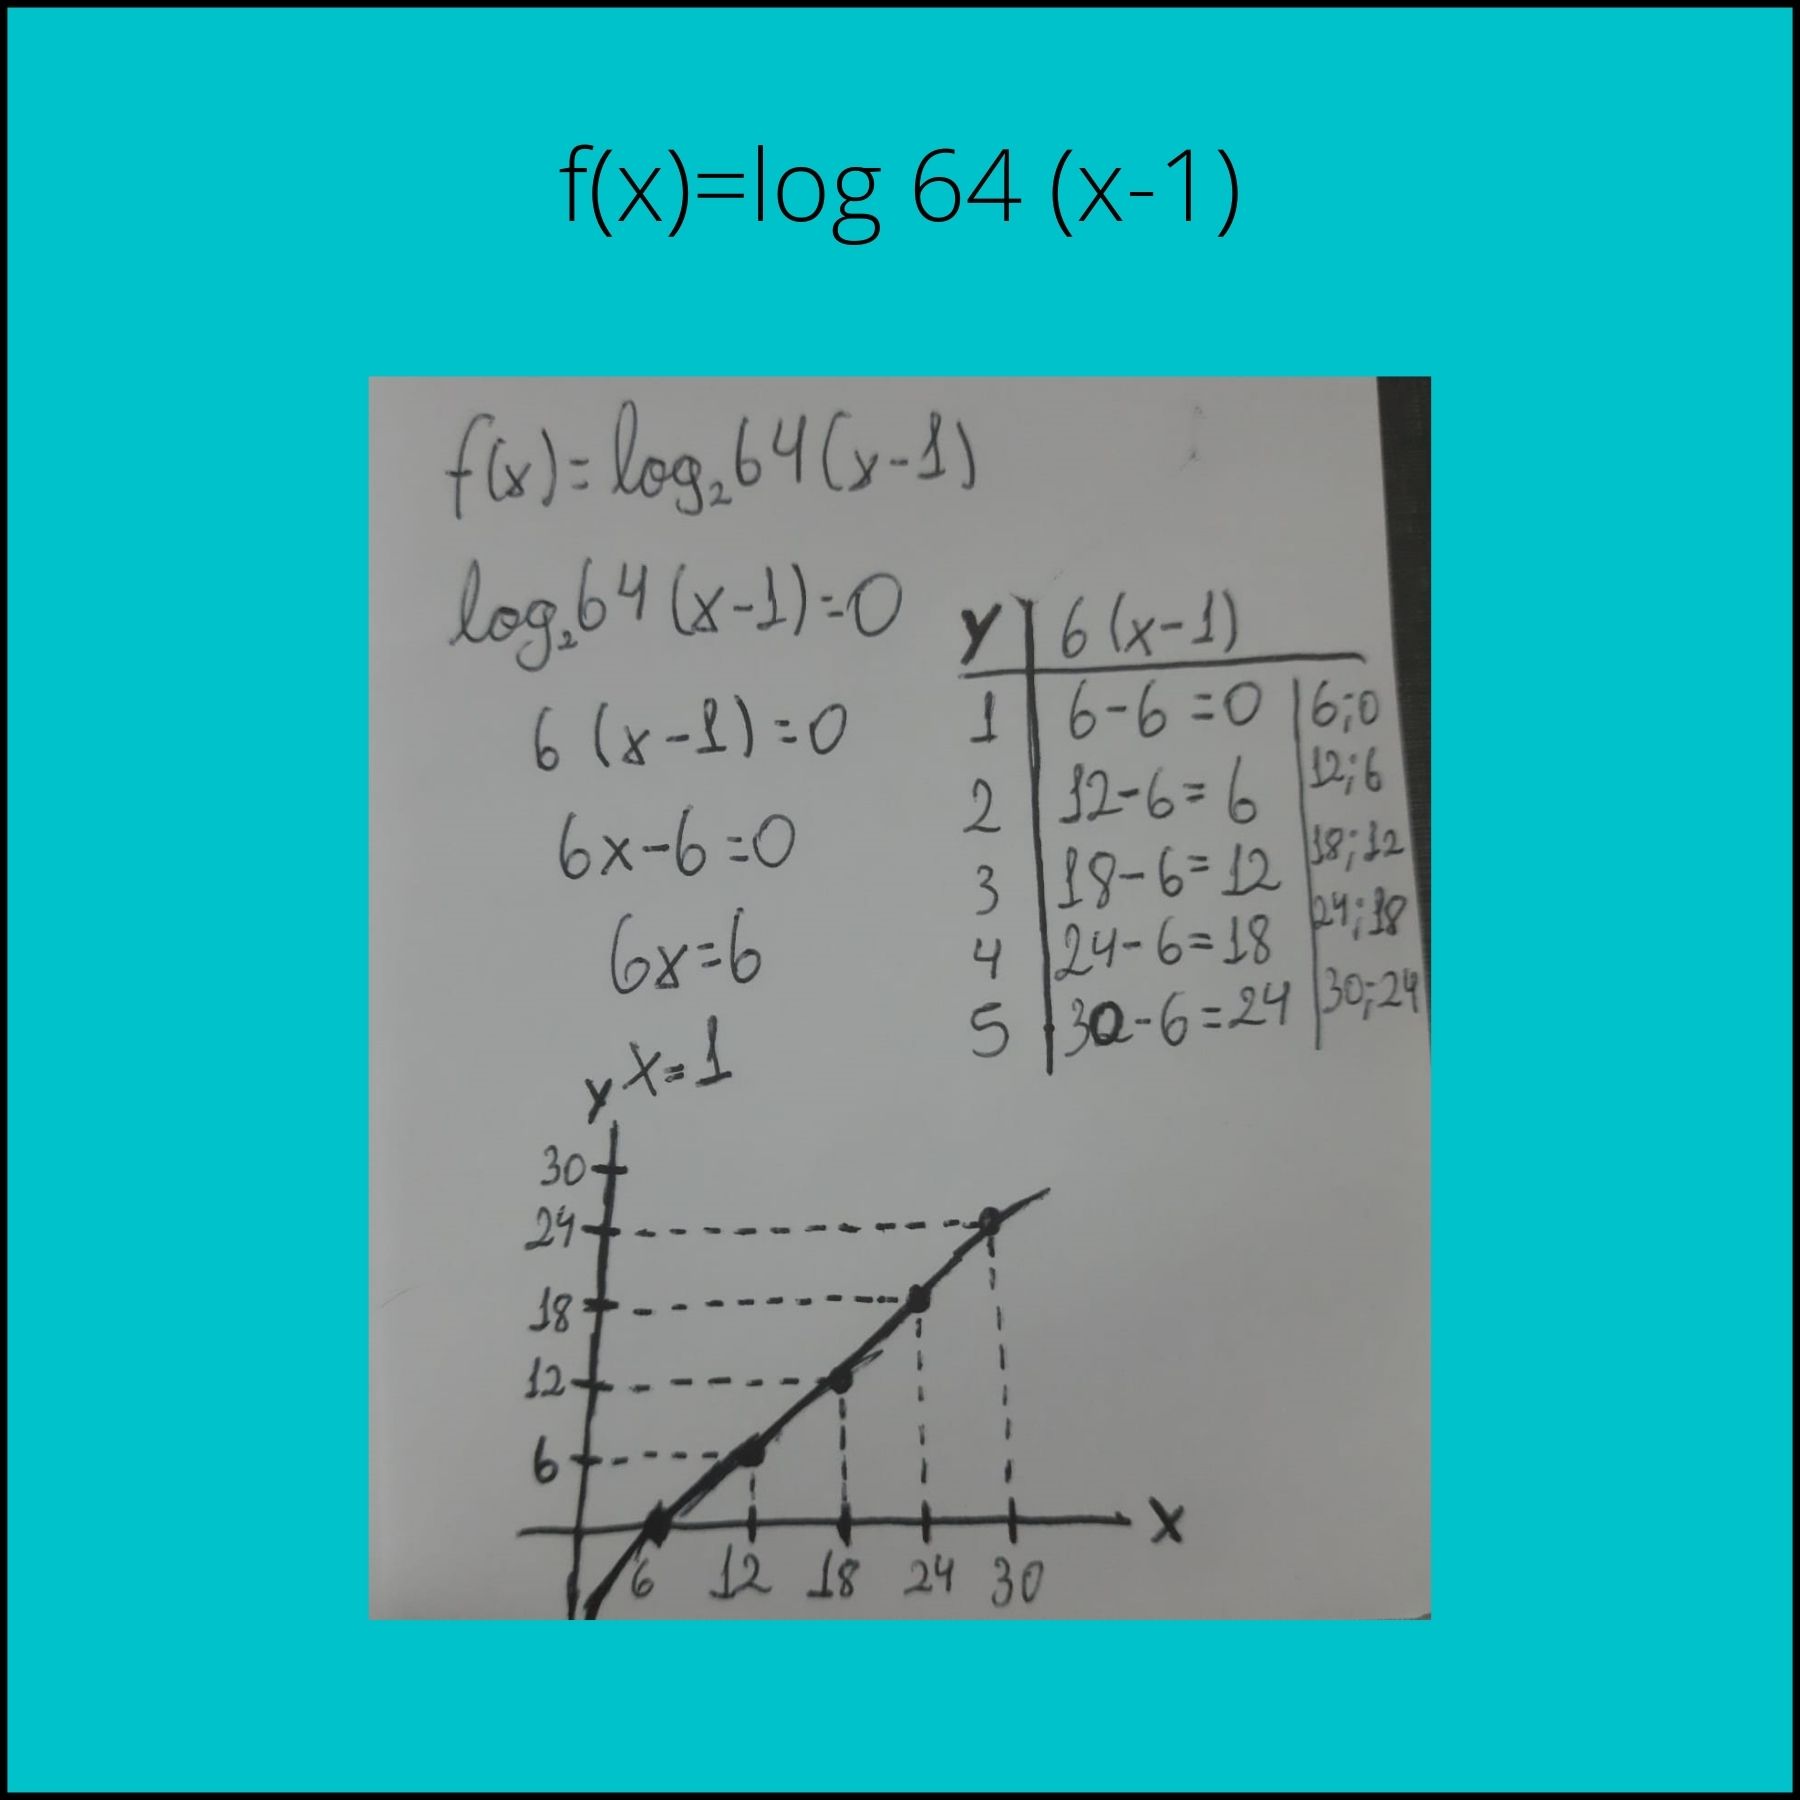 f(x)=log 64 (x-1)
f(x)=log₂64(x-1)
log₂64(x-1)=0
6(x-1)=0
6x-6=0
6x=6
x=1
y | 6(x-1)
1 | 6-6=0 | 6;0
2 | 12-6=6 | 12;6
3 | 18-6=12 | 18;12
4 | 24-6=18 | 24;18
5 | 30-6=24 | 30;24
y
30
24
18
12
6
6 12 18 24 30
x